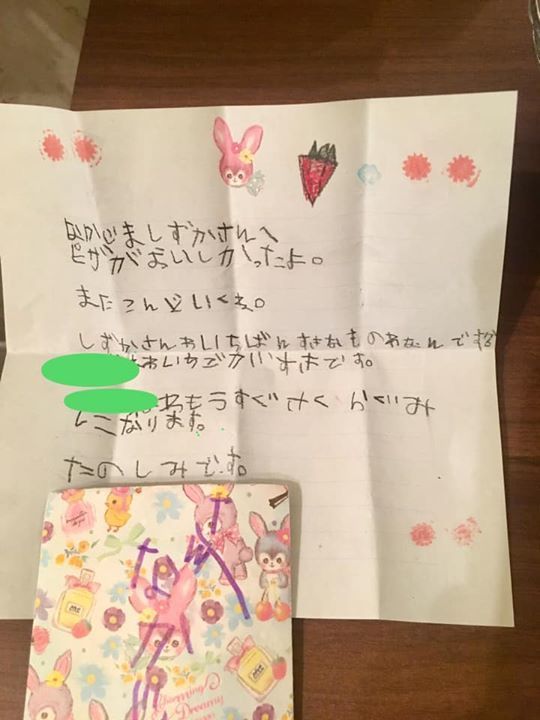 なかじましずかさんへ
ピザがおいしかったよ。
またこんどいくね。
しずかさんわいちばんすきなものわなんですか
わいちご すきです。
わもうすぐさくらぐみ
になります。
たのしみです。
なかじ
Dreamy